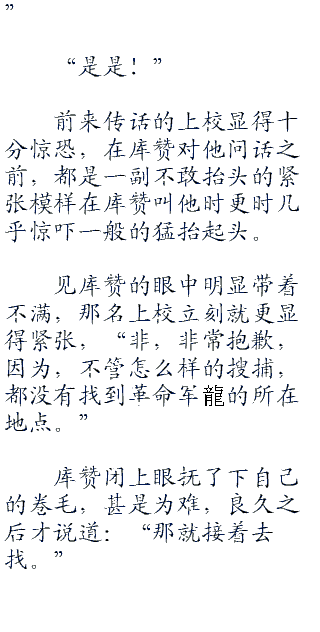 ”
“是是！”
前来传话的上校显得十
分惊恐，在库赞对他问话之
前，都是一副不敢抬头的紧
张模样在库赞叫他时更时几
乎惊吓一般的猛抬起头。
见库赞的眼中明显带着
不满，那名上校立刻就更显
得紧张，“非，非常抱歉，
因为，不管怎么样的搜捕，
都没有找到革命军龍的所在
地点。”
库赞闭上眼抚了下自己
的卷毛，甚是为难，良久之
后才说道：“那就接着去
找。”